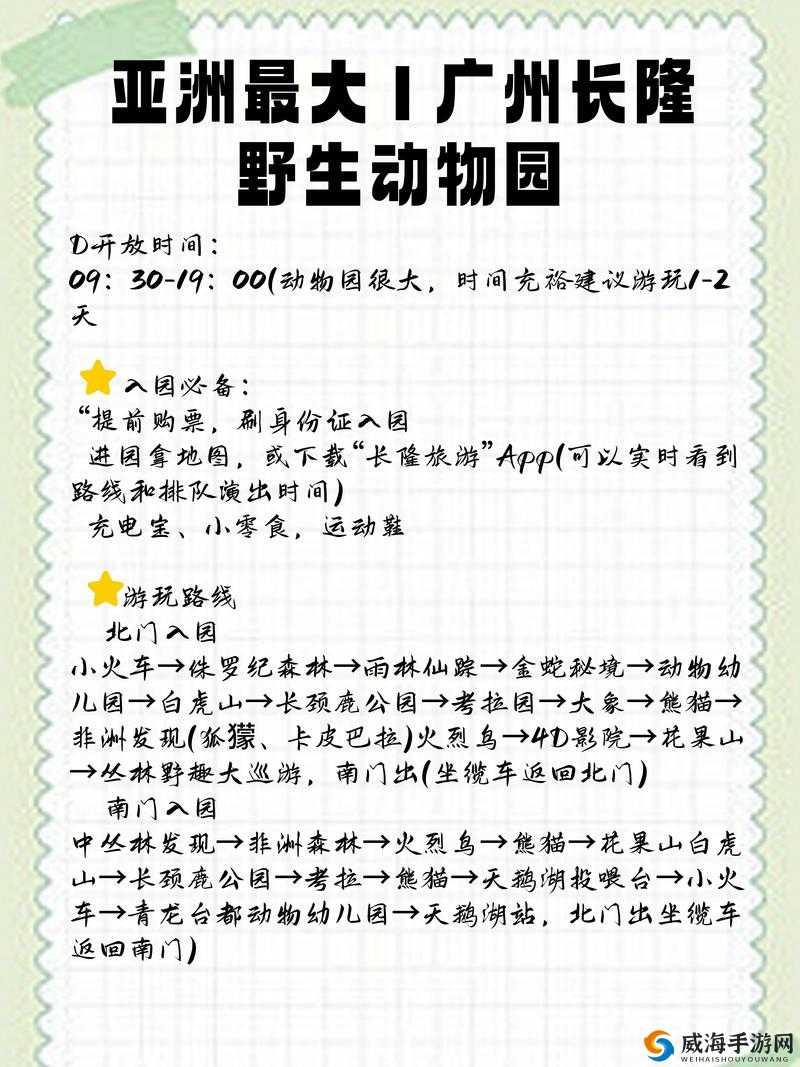 亚洲最大|广州长隆
野生动物园
D开放时间：
09：30-19：00(动物园很大，时间充裕建议游玩1-2
天
入园必备：
“提前购票，刷身份证入园
进园拿地图，或下载“长隆旅游”App(可以实时看到
路线和排队演出时间)
充电宝、小零食，运动鞋
游玩路线
北门入园
小火车→侏罗纪森林→雨林仙踪→金蛇秘境→动物幼
儿园→白虎山→长颈鹿公园→考拉园→大象→熊猫→
非洲发现(狐獴、卡皮巴拉)火烈鸟→4D影院→花果山
→丛林野趣大巡游，南门出(坐缆车返回北门)
南门入园
中丛林发现→非洲森林→火烈鸟→熊猫→花果山白虎
山→长颈鹿公园→考拉→熊猫→天鹅湖投喂台→小火
车→青龙台都动物幼儿园→天鹅湖站，北门出坐缆车
返回南门)
威海手游网
WEIHAISHOUYOUWANG